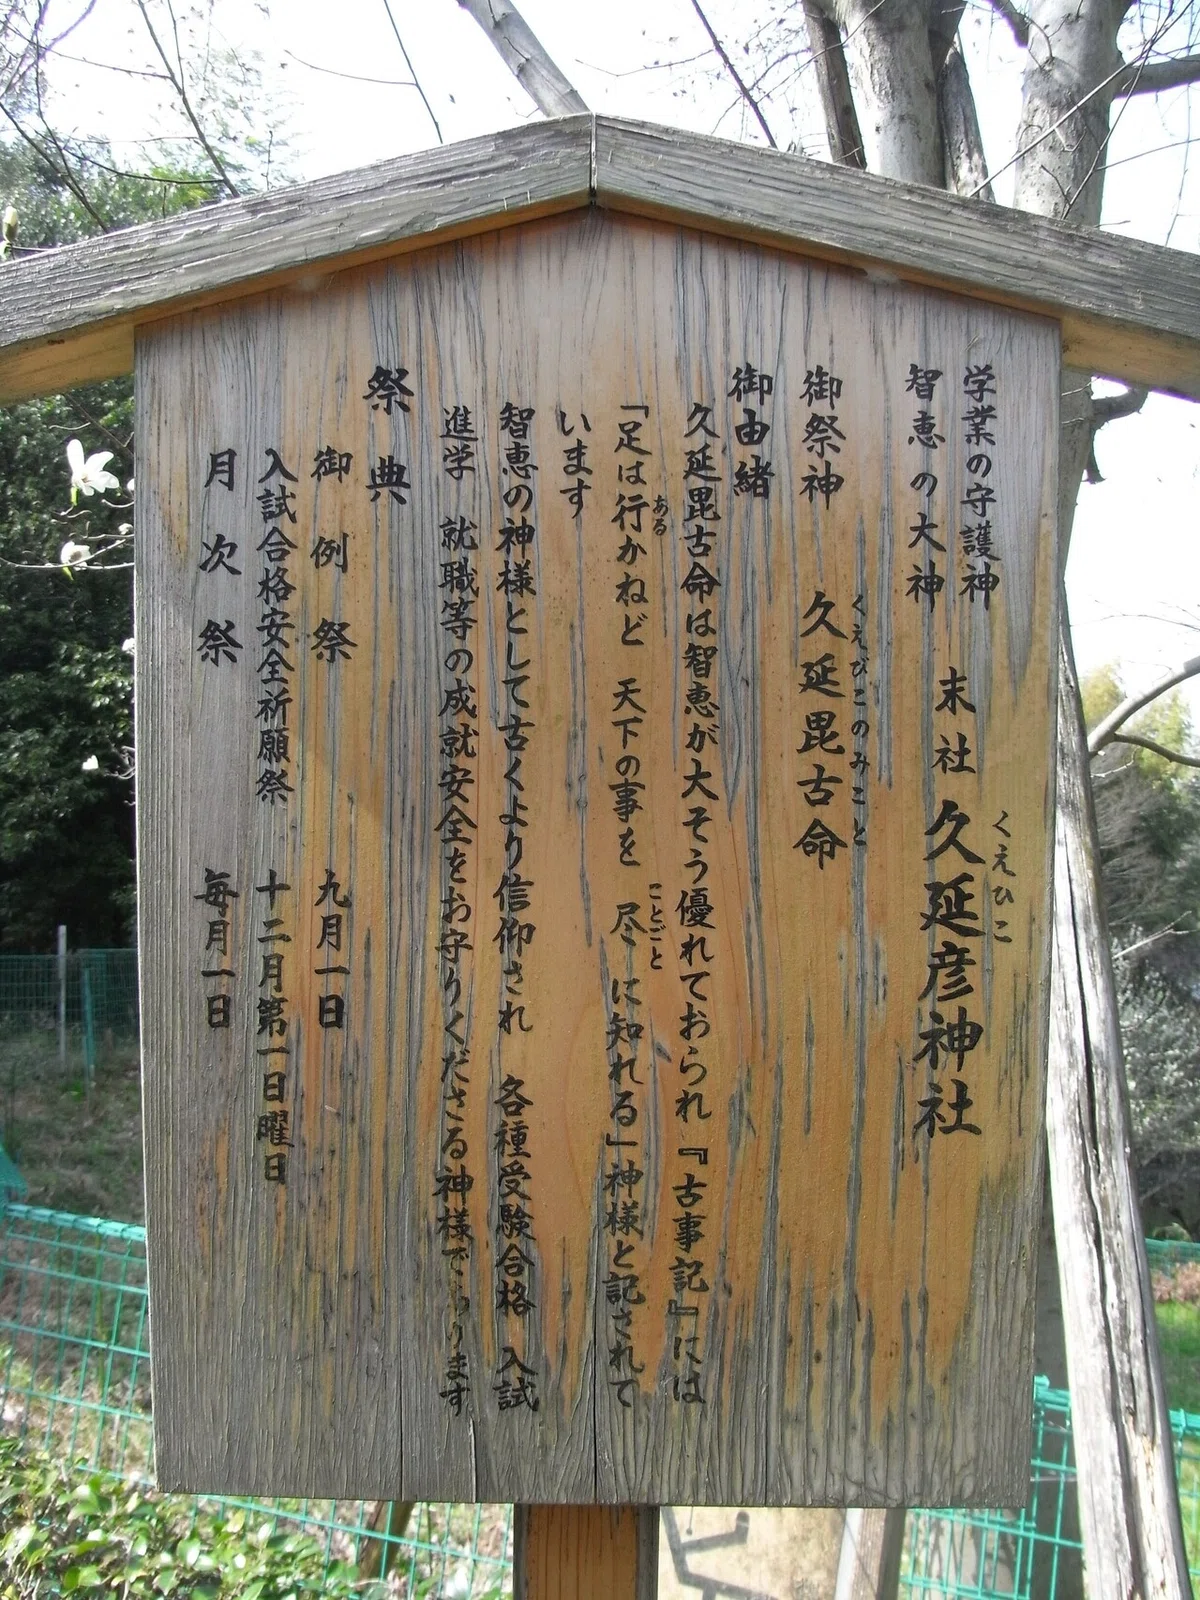 学業の守護神
智恵の大神
末社 久延彦神社
くえひこ
御祭神 久延毘古命
くえびこのみこと
御由緒
久延毘古命は智恵が大そう優れておられ『古事記』には
「足は行かねど 天下の事を 尽に知れる」神様と記されて
ある
ことごと
います
智恵の神様として古くより信仰され 各種受験合格 入試
進学 就職等の成就安全をお守りくださる神様であります
祭典
御例祭 九月一日
入試合格安全祈願祭 十二月第一日曜日
月次祭 毎月一日